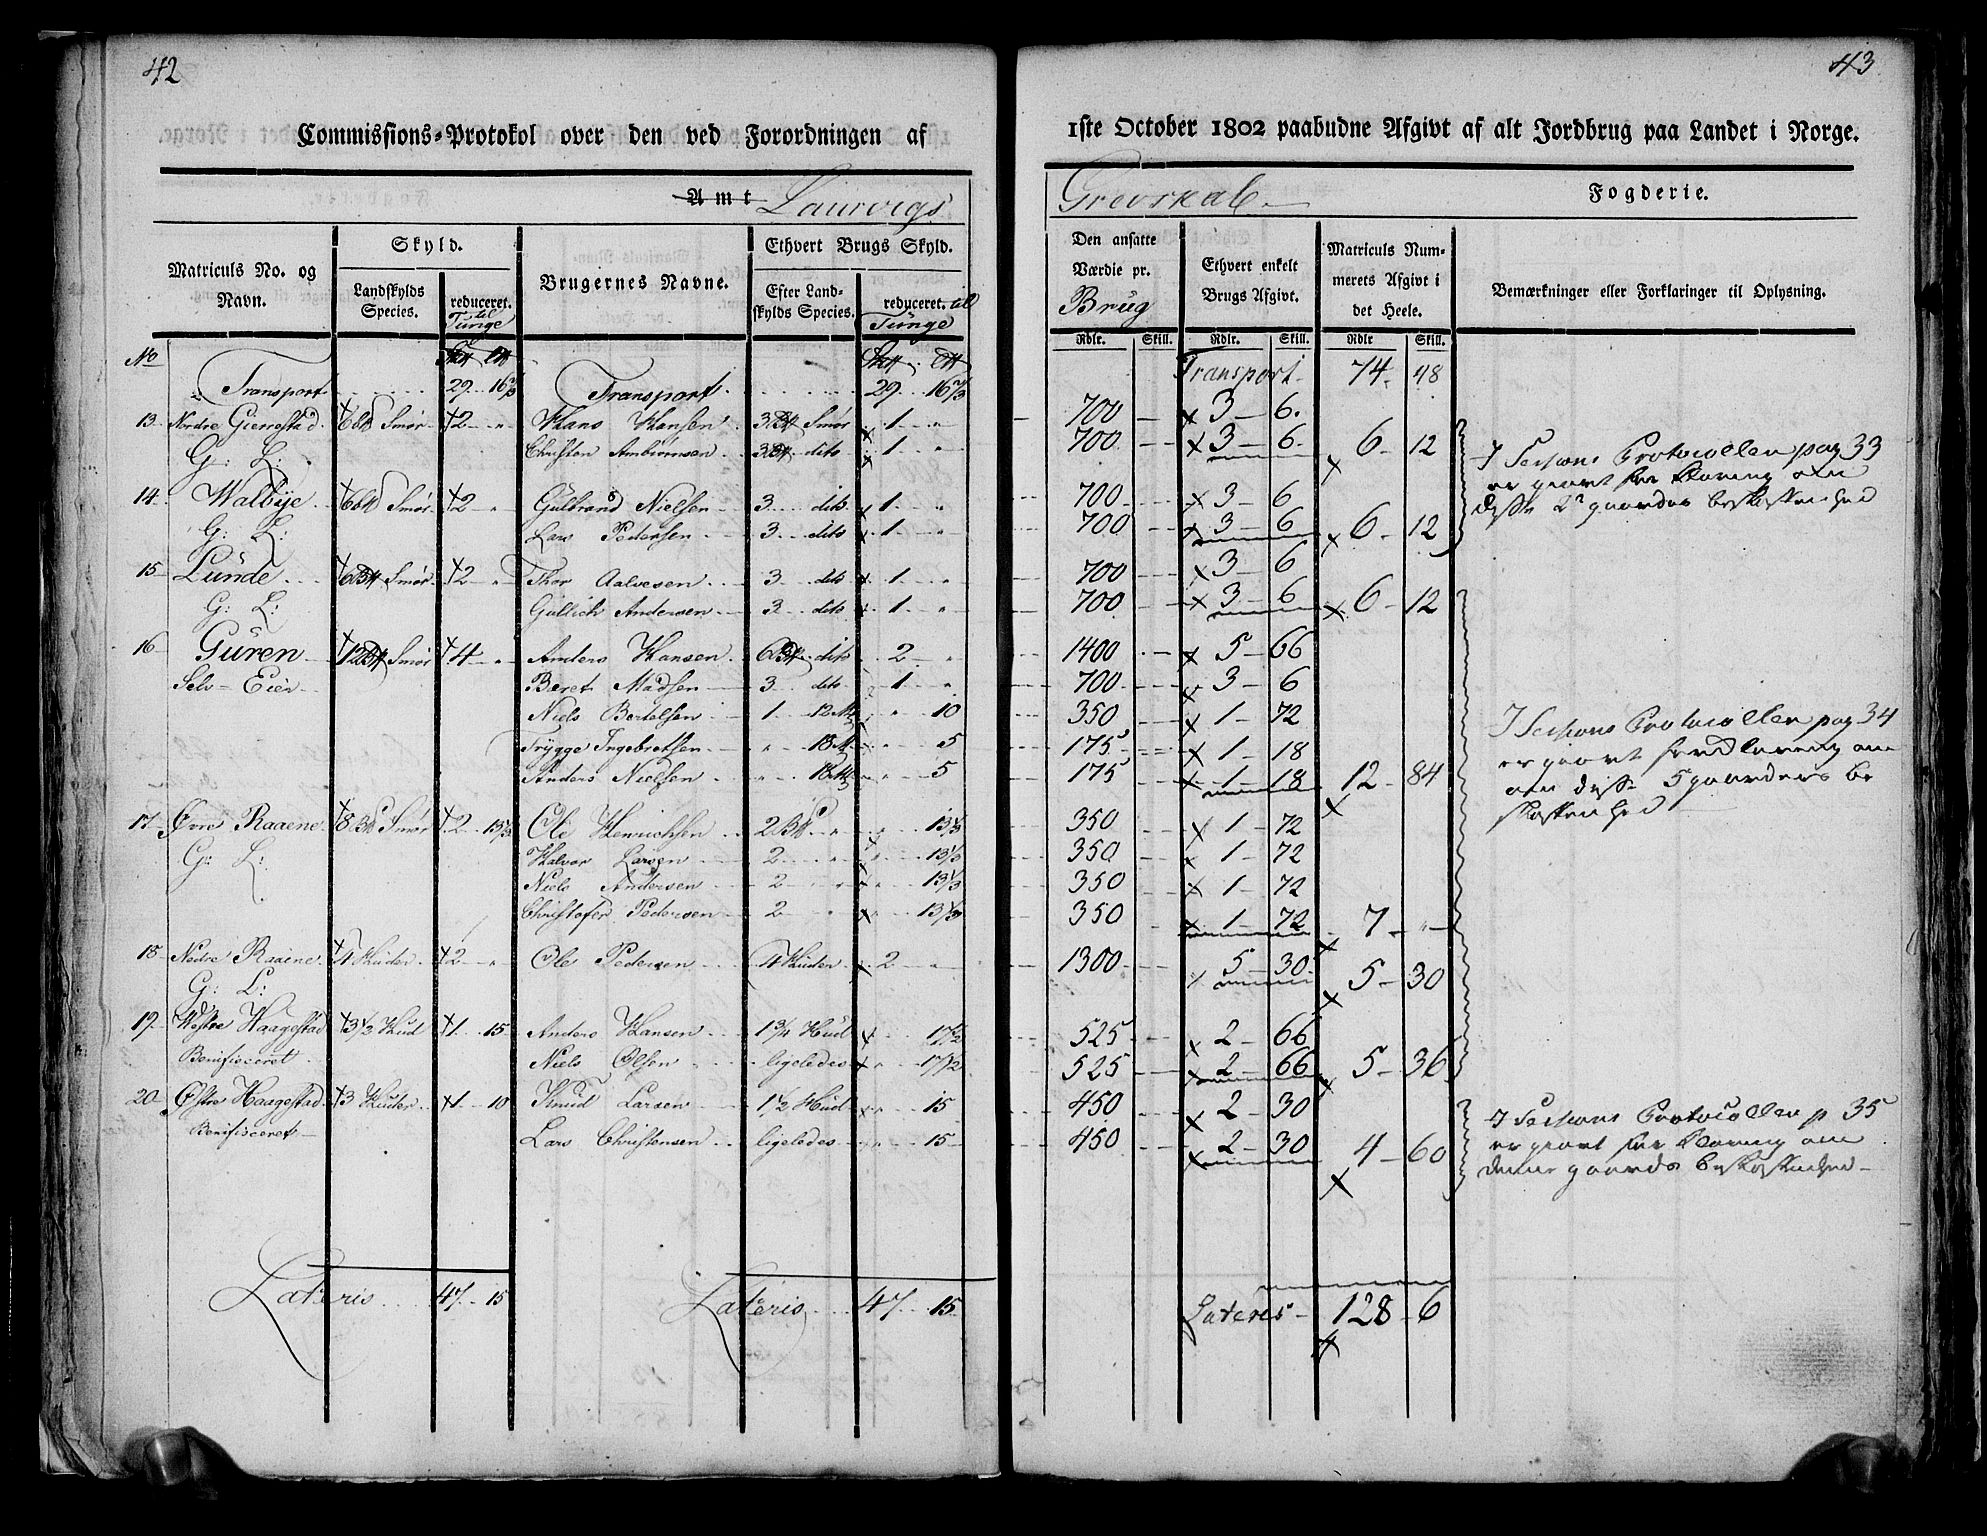 42
Commissions-Protokol over den ved Forordningen af
Amt Laurvigs
Matriculs No. og Navn.
Skyld.
Landskylds Species.
reduceret. til Tunge
Brugernes Navne.
Ethvert Brugs Skyld.
Efter Landskylds Species.
reduceret. til Tunge
No
Transport 29 16 2/3 Transport 29 16 2/3
13 Nordre Gierrestad 6 Smør 2 " Hans Hansen 3 Smør 1 "
G: L: Christen Ambrosen 3 dito 1 "
14 Walbye 6 Smør 2 " Gulbrand Nielsen 3 dito 1 "
G: L: Lars Pedersen 3 dito 1 "
15 Lunde 6 Smør 2 " Thor Aalvesen 3 dito 1 "
G: L: Gullich Andersen 3 dito 1 "
16 Guren 12 Smør 4 " Anders Hansen 6 dito 2 "
Selv-Eier Beret Madsen 3 dito 1 "
Niels Bertelsen 1 12 " 10
Trygge Ingebretsen " 18 " 5
Anders Nielsen " 18 " 5
17 Øvre Raaene 8 Smør 2 13 1/3 Ole Henrichsen 2 " 13 1/3
G: L: Halvor Larsen 2 " " 13 1/3
Niels Andersen 2 " " 13 1/3
Christofer Pedersen 2 " " 13 1/3
18 Nedre Raaene 4 Huder 2 " Ole Pedersen 4 Huder 2
G: L:
19 Westre Haagestad 3 1/2 Hud 1 15 Anders Hansen 1 3/4 Hud 17 1/2
Benificeret Niels Olsen ligeledes " 17 1/2
20 Østre Haagestad 3 Huder 1 10 Knud Larsen 1 1/2 Hud " 15
Benificeret Lars Christensen ligeledes " 15
Lateris 47 15 Lateris 47 15
43
1ste October 1802 paabudne Afgivt af alt Jordbrug paa Landet i Norge.
Grevskab Fogderie.
Den ansatte Værdie pr. Brug
Ethvert enkelt Brugs Afgivt.
Matriculs Nummerets Afgivt i det Heele.
Bemærkninger eller Forklaringer til Oplysning.
Rdlr. Skill. Rdlr. Skill. Rdlr Skill.
Transport 74 48
700 3 6
700 3 6 6 12
I Sessions Protocollen pag 33
er giort forklaring om
disse 2de gaarders beskaffenhed
700 3 6
700 3 6 6 12
700 3 6
700 3 6 6 12
1400 5 66
700 3 6
350 1 72
175 1 18
175 1 18 12 84
I Sessions Protocollen pag 34
er giort forklaring om
om disse 5 gaarders be
skaffenhed
350 1 72
350 1 72
350 1 72
350 1 72 7 "
1300 5 30 5 30
525 2 66
525 2 66 5 36
450 2 30
450 2 30 4 60
I Sessions Protocollen p 35
er giort forklaring om
denne gaards beskaffenhed
Lateris 128 6